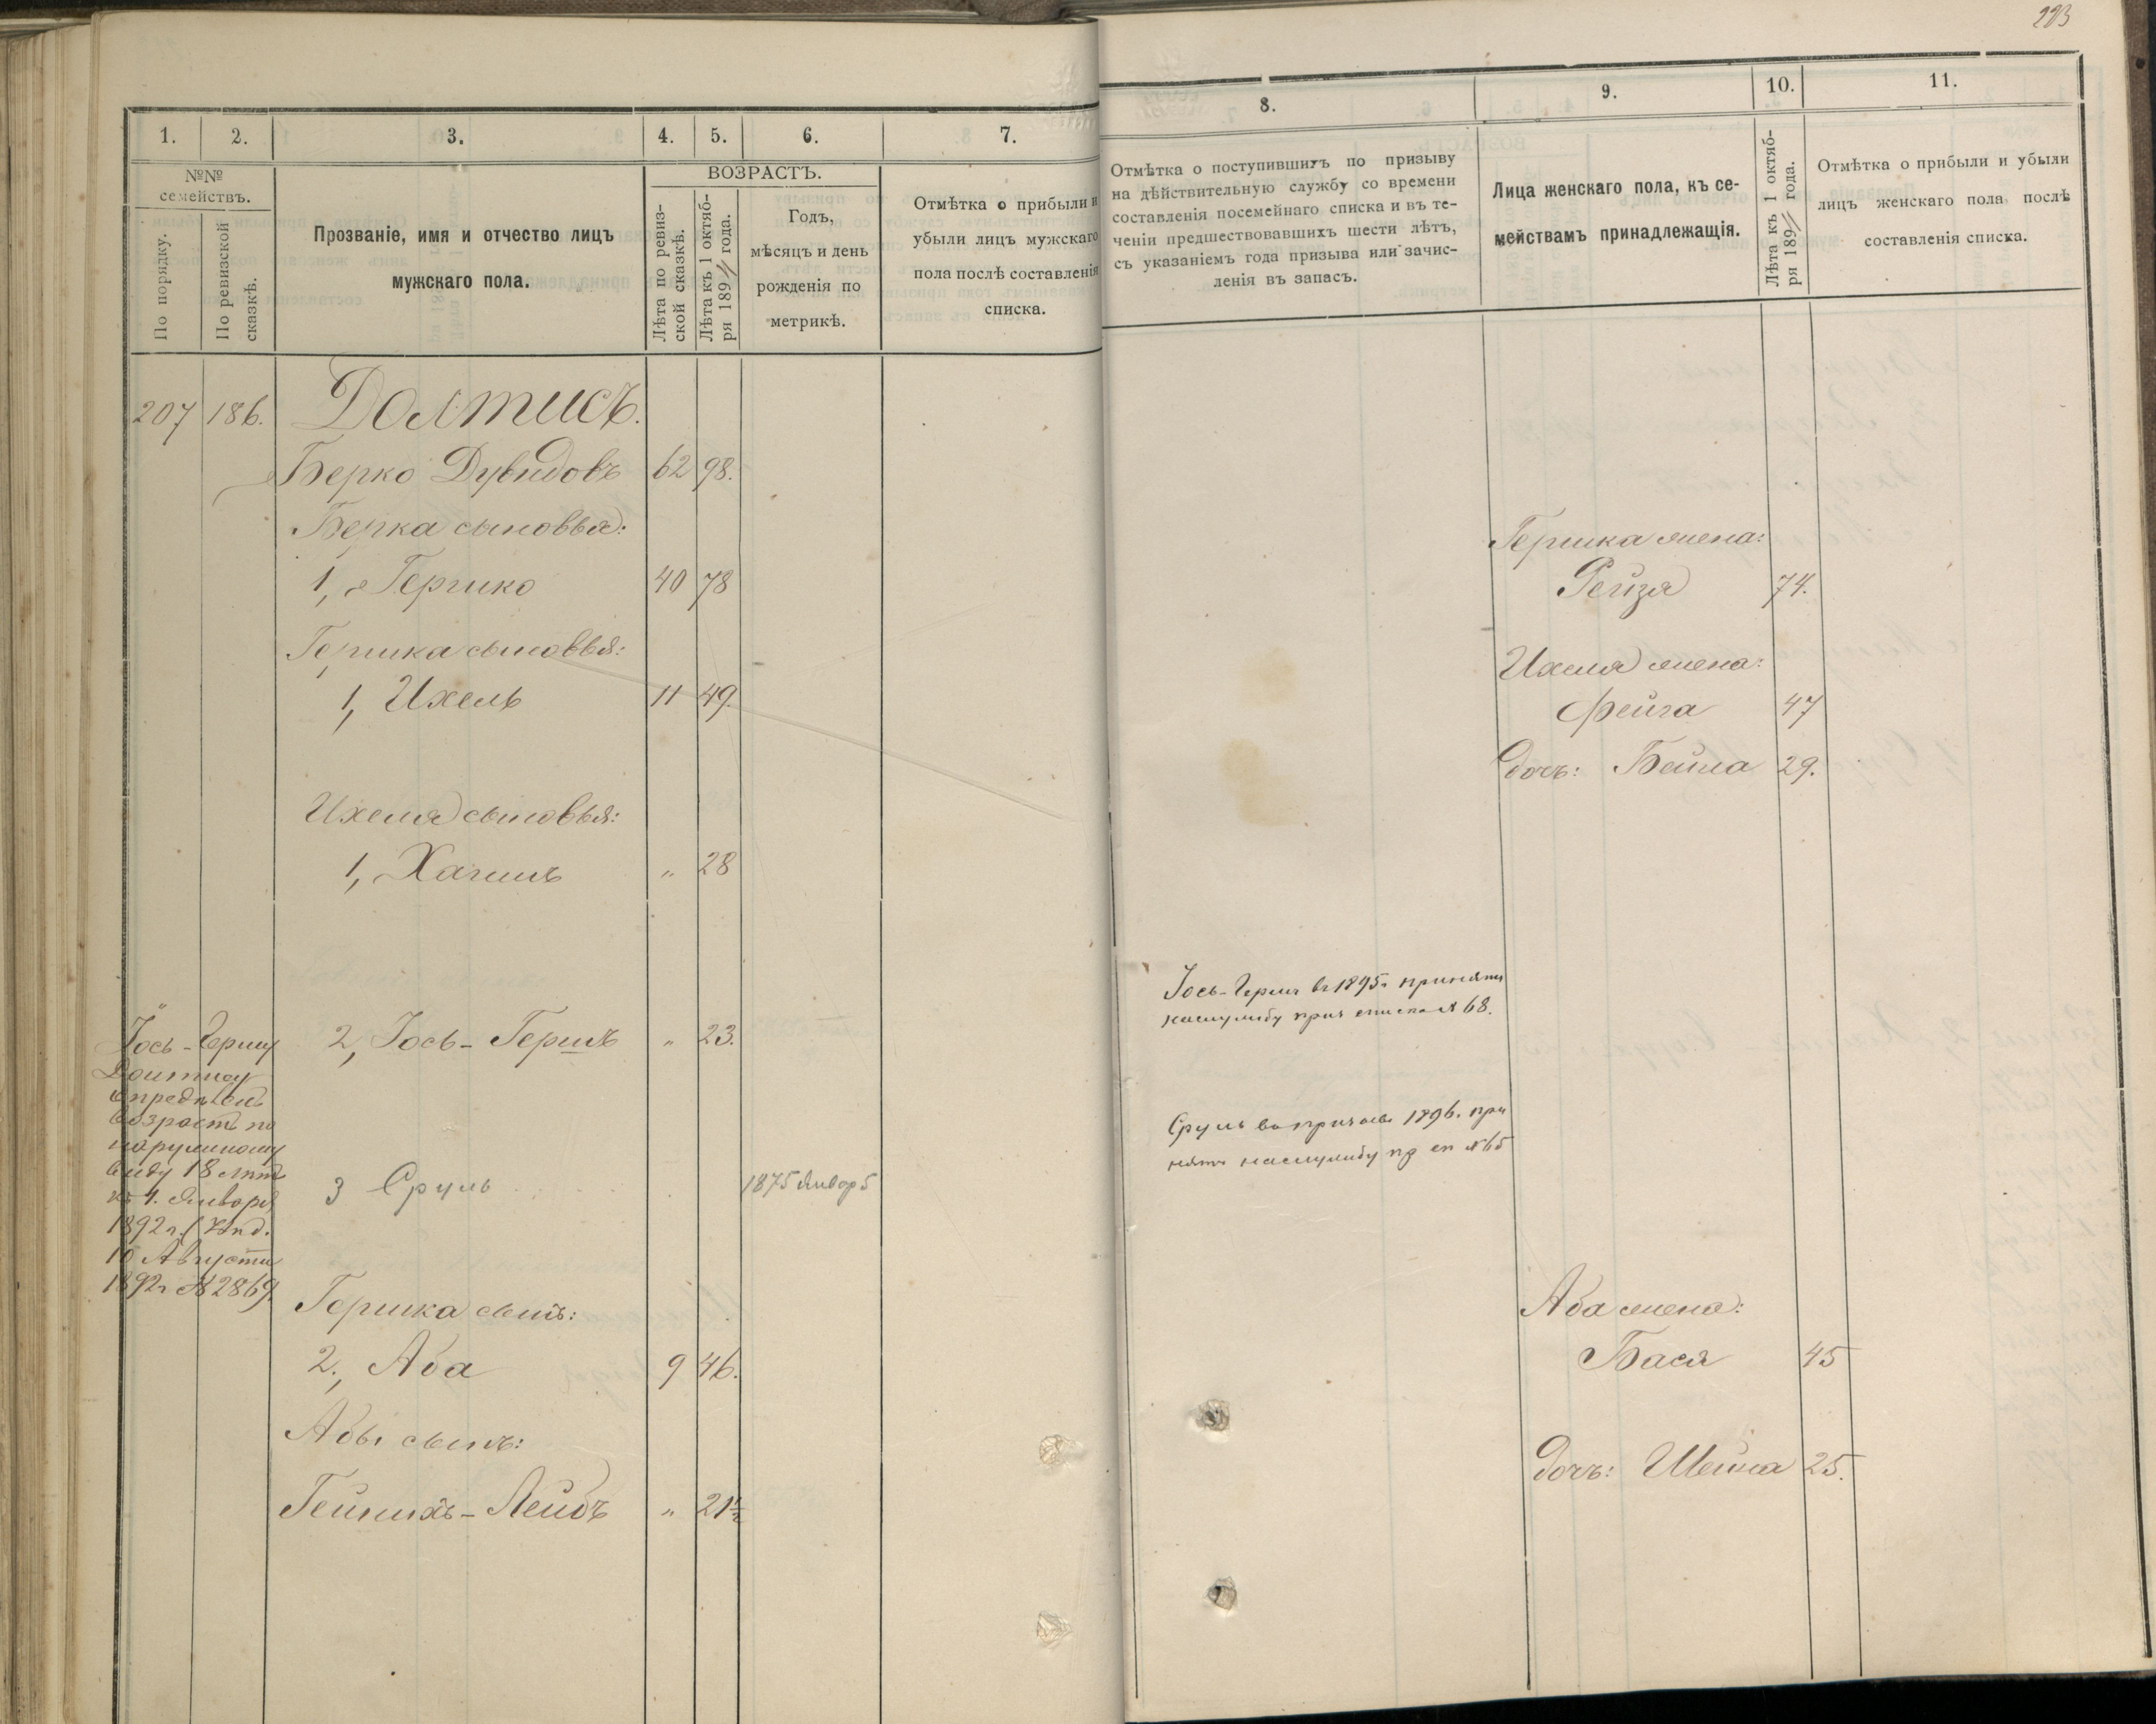 223
1. 2. 3. 4. 5. 6. 7.
№№ семействъ.
По порядку.
По ревизской сказкѣ.
Прозваніе, имя и отчество лицъ
мужскаго пола.
ВОЗРАСТЪ.
Лѣта по ревиз-
ской сказкѣ.
Лѣта къ 1 октяб-
ря 189 года.
Годъ,
мѣсяцъ и день
рожденія по
метрикѣ.
Отмѣтка о прибыли и
убыли лицъ мужскаго
пола послѣ составленія
списка.
207 186. Долтисъ.
Берко Дувидовъ 62 98.
Берка сыновья:
1, Гершко 40 78
Гершка сыновья:
1, Ихель 11 49.
Ихеля сыновья:
1, Хаимъ " 28
2, Іось-Гершъ " 23.
Іось-Гершу
опредѣленъ
возрастъ по
наружному
виду 18 лѣтъ
къ 1. Января
1892 г.
10 Августа
1892 г № 2869.
3 Сруль 1875 Январ 5
Гершка сынъ:
2., Аба 9 46.
Абы сынъ:
Гейнихъ-Лейбъ " 21½
8. 9. 10. 11.
Отмѣтка о поступившихъ по призыву
на дѣйствительную службу со времени
составленія посемейнаго списка и въ те-
ченіи предшествовавшихъ шести лѣтъ,
съ указаніемъ года призыва или зачис-
ленія въ запасъ.
Лица женскаго пола, къ се-
мействамъ принадлежащія.
Лѣта къ 1 октяб-
ря 189 года.
Отмѣтка о прибыли и убыли
лицъ женскаго пола послѣ
составленія списка.
Гершка жена:
Рейза 74.
Ихеля жена:
Фейга 47
дочь: Бейла 29.
Іось-Гершъ въ 1895 г принятъ
на службу приз списка № 68.
Сруль въ призывъ 1896. при
нятъ на службу пр сп № 65
Аба жена:
Бася 45
дочь: Шейна 25.